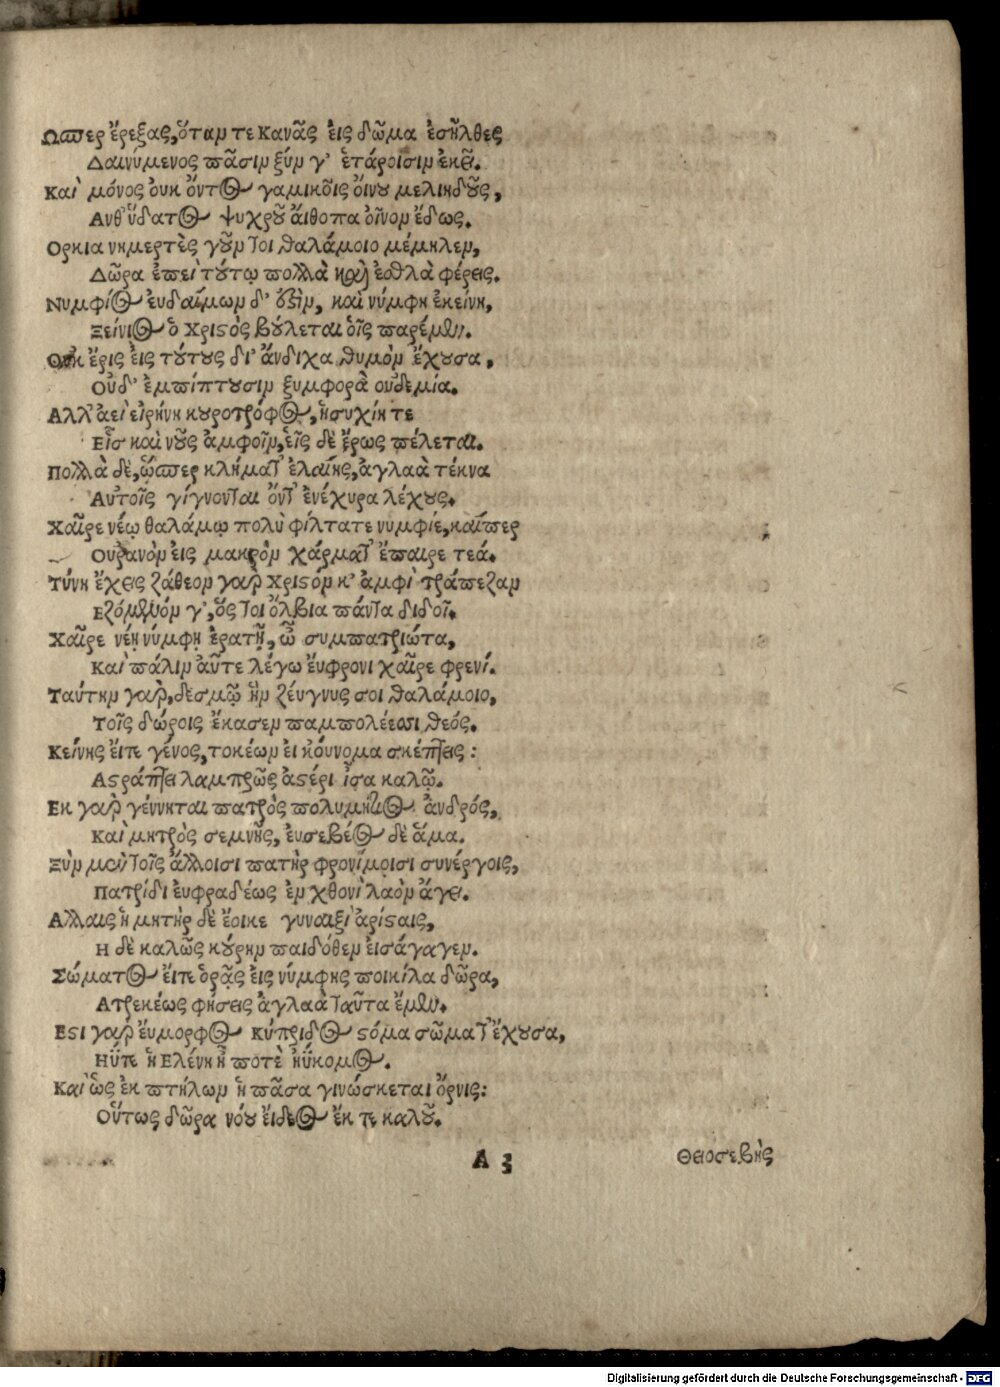 Ὥσπερ ἔρεξας, ὅταν τε Κανᾶς εἰς δῶμα ἐσῆλθες
Δαινύμενος πᾶσιν ξύν γ' ἑτάροισιν ἐκεῖ.
Καὶ μόνος οὐκ ὄντος γαμικοῖς οἴνου μελιηδοῦς,
Ἀνθ' ὕδατος ψυχροῦ αἴθοπα οἶνον ἔδως.
Ὅρκια νημερτὲς γοῦν τοι θαλάμοιο μέμηλεν,
Δῶρα ἐπεὶ τούτῳ πολλὰ καὶ ἐσθλὰ φέρεις.
Νυμφίος εὐδαίμων δ' ὅστιν, καὶ νύμφη ἐκείνη,
Ξείνιος ὁ Χριστὸς βούλεται οἷς παρέμεν.
Οὐκ ἔρις εἰς τούτους δι' ἄνδιχα θυμὸν ἔχουσα,
Οὐδ' ἐμπίπτουσιν ξυμφορὰ οὐδεμία.
Ἀλλ' ἀεὶ εἰρήνη κουροτρόφος, ἡσυχίη τε
Εἷς καὶ νοῦς ἀμφοῖν, εἷς δὲ ἔρως πέλεται.
Πολλὰ δὲ, ὥσπερ κλήματ' ἐλαίης, ἀγλαὰ τέκνα
Αὐτοῖς γίγνονται ὄντ' ἐνέχυρα λέχους.
Χαῖρε νέῳ θαλάμῳ πολὺ φίλτατε νυμφίε, καίπερ
Οὐρανὸν εἰς μακρὸν χάρματ' ἔπαιρε τεά.
Τύνη ἔχεις ζάθεον γὰρ Χριστόν κ' ἀμφὶ τράπεζαν
Ἑζόμενόν γ', ὅς τοι ὄλβια πάντα διδοῖ.
Χαῖρε νέη νύμφη ἐρατῇ, ὦ συμπατριῶτα,
Καὶ πάλιν αὖτε λέγω εὔφρονι χαῖρε φρενί.
Ταύτην γὰρ, δεσμῷ ἣν ζεύγνυς σοι θαλάμοιο,
Τοῖς δώροις ἔκασεν παμπολέεσσι θεός.
Κείνης εἴτε γένος, τοκέων εἰ κοὔνομα σκέπτεις:
Ἀστράπτει λαμπρῶς ἀστέρι ἶσα καλῷ.
Ἐκ γὰρ γέννηται πατρὸς πολυμήτιος ἀνδρός,
Καὶ μητρὸς σεμνῆς, εὐσεβέος δὲ ἅμα.
Ξὺν μὲν τοῖς ἄλλοισι πατὴρ φρονίμοισι συνέργοις,
Πατρίδι εὐφραδέως ἐν χθονὶ λαὸν ἄγει.
Ἄλλαις ἡ μητὴρ δὲ ἔοικε γυναιξὶ ἀρίσταις,
Ἣ δὲ καλῶς κούρην παιδόθεν εἰσάγαγεν.
Σώματος εἴτε ὁρᾷς εἰς νύμφης ποικίλα δῶρα,
Ἀτρεκέως φήσεις ἀγλαὰ ταῦτα ἔμεν.
Ἐστὶ γὰρ εὔμορφος κύπριδος στόμα σῶματ' ἔχουσα,
Ἠΰτε ἡ Ἑλένη ἦ ποτὲ ἠΰκομος.
Καὶ ὡς ἐκ πτήλων ἡ πᾶσα γινώσκεται ὄρνις:
Οὕτως δῶρα νόου εἴδεος ἔκ τε καλοῦ.
A 3
Θεοσεβὴς
Digitalisierung gefördert durch die Deutsche Forschungsgemeinschaft - DFG